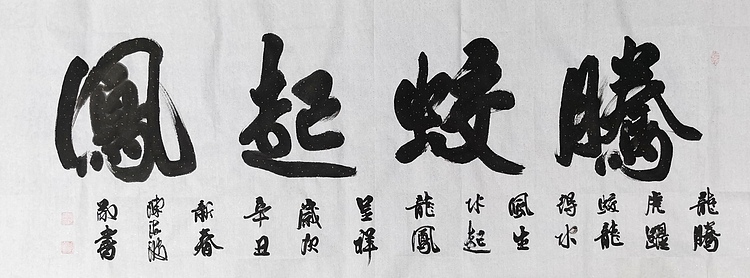 腾蛟起鳳
龍腾
虎躍
蛟龍
得水
風生
水起
龍鳳
呈祥
歲次
辛丑
献春
陳
書